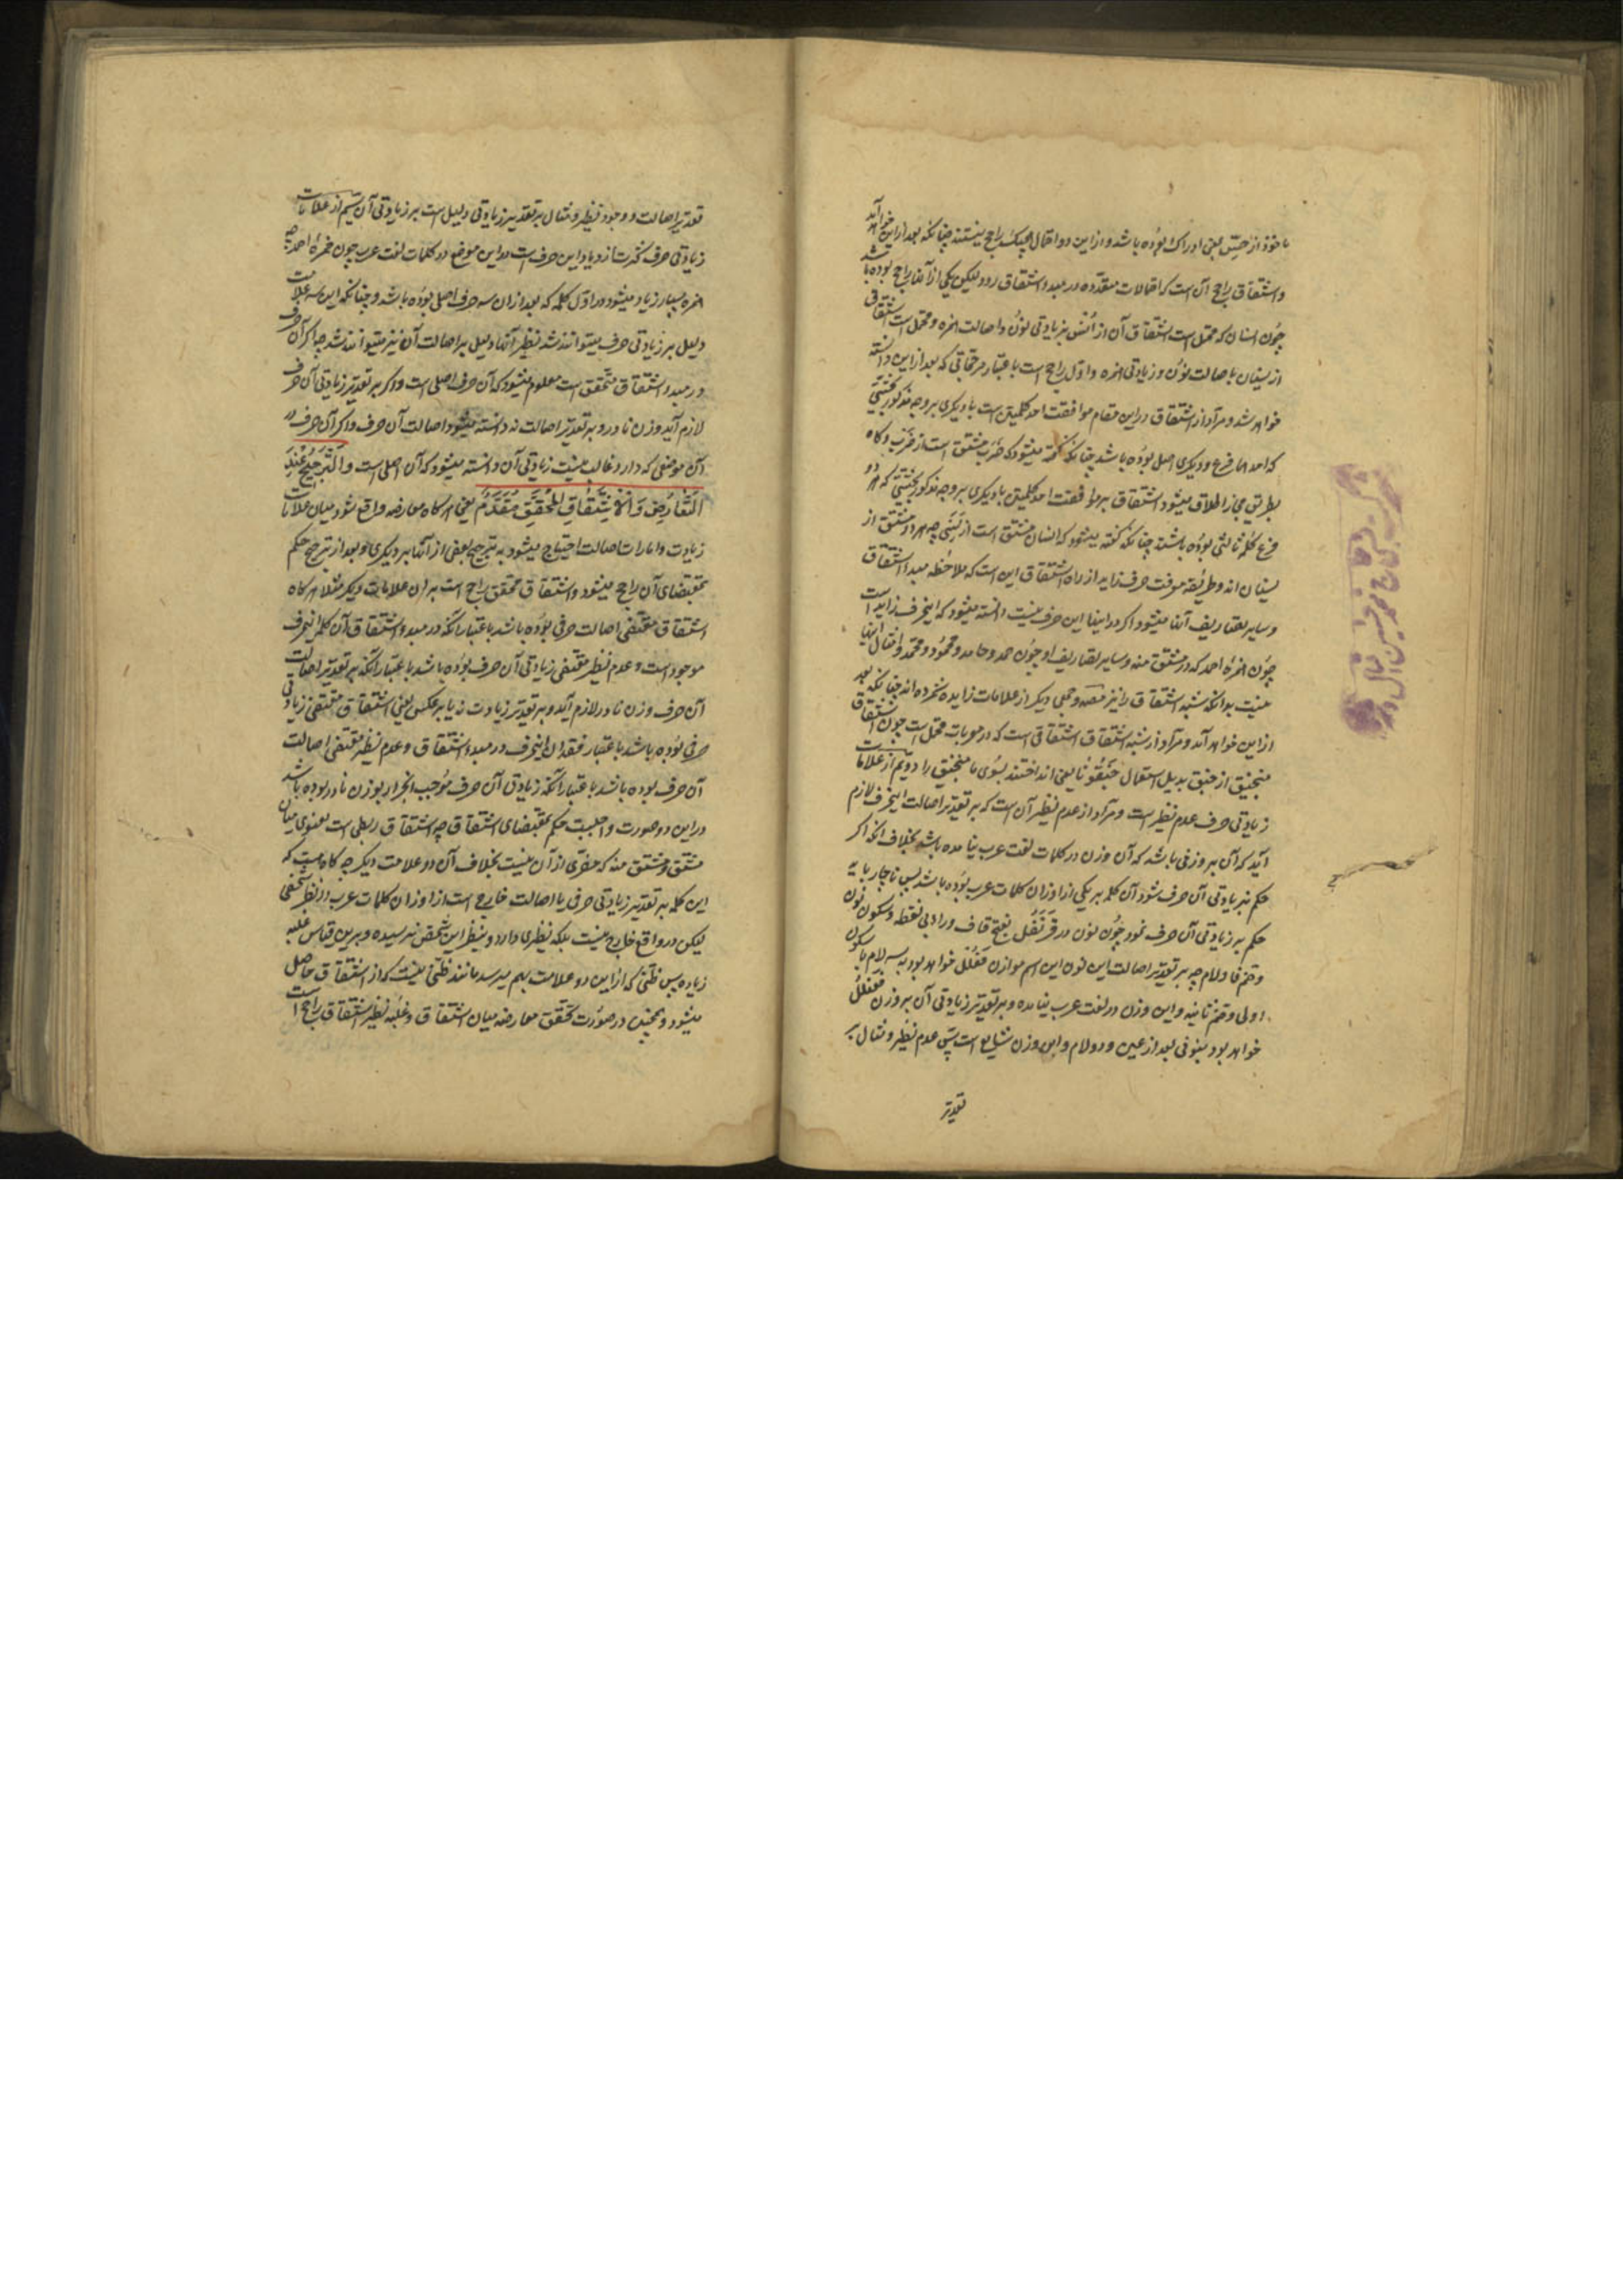 ماخوذ از حِسّ بمعنی ادراک بوده باشد و از این دو احتمال هیچیک راجح نیستند چنانکه بعد از این خواهد آمد
و اشتقاق راجح آن است که احتمالات متعدّده در مبدء اشتقاق رود و لیکن یکی از آنها راجح بوده باشد
چون انسان که محتمل است اشتقاق آن از اُنس بزیادتی نون و اصالت همزه و محتمل است اشتقاق
از نسیان باصالت نون و زیادتی همزه و اوّل راجح است باعتبار مرجحاتی که بعد از این دانسته
خواهد شد و مراد از اشتقاق در این مقام موافقت احد کلمتین است با دیگری بر وجه مذکور بحیثیتی
که احدهما فرع و دیگری اصل بوده باشد چنانکه گفته میشود که ضَرَبَ مشتق است از ضَرْب و گاه
بطریق مجاز اطلاق میشود اشتقاق بر موافقت احد کلمتین با دیگری بر وجه مذکور بحیثیتی که هر دو
فرع کلمه ثالثی بوده باشند چنانکه گفته میشود که انسان مشتق است از نَسِیَ چه هر دو مشتق از
نسیان اند و طریقه معرفت حرف زاید از راه اشتقاق این است که ملاحظه مبدء اشتقاق
و سایر تصاریف آنها میشود اگر در اینها این حرف نیست دانسته میشود که اینحرف زاید است
چون همزهٔ احمد که در مشتق منه و سایر تصاریف او چون حمد و حامد و محمود و محمّد و امثال اینها
نیست بدانکه شبه اشتقاق را نیز مصه و جمعی دیگر از علامات زایده شمرده اند چنانکه بعد
از این خواهد آمد و مراد از شبه اشتقاق اشتقاقی است که در معربات محتمل است چون اشتقاق
منجنیق از جنق بدلیل استعمال جَنَقُونا یعنی انداختند بسوی ما منجنیق را دویّم از علامات
زیادتی حرف عدم نظیر است و مراد از عدم نظیر آن است که بر تقدیر اصالت اینحرف لازم
آید که آن بر وزنی باشد که آن وزن در کلمات لغت عرب نیامده باشد بخلاف آنکه اگر
حکم بزیادتی آن حرف شود آن کلمه بر یکی از اوزان کلمات عرب بوده باشد پس ناچار باید
حکم به زیادتی آن حرف نمود چون نون در قَرَنْفُل بفتح قاف و راء بی نقطه و سکون نون
و ضمّ فا و لام چه بر تقدیر اصالت این نون این اسم موازن فَعَلْلُل خواهد بود به سه لام با سکون
اولی و ضمّ ثانیه و این وزن در لغت عرب نیامده و بر تقدیر زیادتی آن بر وزن فَعَنْلُل
خواهد بود بنونی بعد از عین و دو لام و این وزن شایع است پس عدم نظیر و مثال بر
تقدیر
تقدیر اصالت و وجود نظیر و مثال بر تقدیر زیادتی دلیل است بر زیادتی آن سیّم از علامات
زیادتی حرف کثرت ازدیاد این حرف است در این موضع در کلمات لغت عرب چون همزهٔ احمد چه
همزه بسیار زیاد میشود در اوّل کلمه که بعد از آن سه حرف اصلی بوده باشد و چنانکه این سه علامت
دلیل بر زیادتی حرف میتوانند شد نظیر آنها دلیل بر اصالت آن نیز میتوانند شد چه اگر آن حرف
در مبدء اشتقاق متحقق است معلوم میشود که آن حرف اصلی است و اگر بر تقدیر زیادتی آن حرف
لازم آید وزن نادر و به تقدیر اصالت نه دانسته میشود اصالت آن حرف و اگر آن حرف در
آن موضعی که دارد غالب نیست زیادتی آن دانسته میشود که آن اصلی است وَ التَّرْجیحُ عِنْدَ
التَّعارُضِ وَ الاِشْتِقاقِ المُحَقَّقِ مُقَدَّمٌ یعنی هرگاه معارضه واقع شود میان علامات
زیادت و امارات اصالت احتیاج میشود به ترجیح بعضی از آنها بر دیگری و بعد از ترجیح حکم
بمقتضای آن راجح میشود و اشتقاق محقق راجح است بر آن علامات دیگر مثلا هرگاه
اشتقاق مقتضی اصالت حرفی بوده باشد باعتبار آنکه در مبدء اشتقاق آن کلمه اینحرف
موجود است و عدم نظیر مقتضی زیادتی آن حرف بوده باشد باعتبار آنکه بر تقدیر اصالت
آن حرف وزن نادر لازم آید و بر تقدیر زیادت نه یا بر عکس یعنی اشتقاق مقتضی زیادتی
حرفی بوده باشد باعتبار فقدان اینحرف در مبدء اشتقاق و عدم نظیر مقتضی اصالت
آن حرف بوده باشد باعتبار آنکه زیادتی آن حرف موجب انجرار بوزن نادر بوده باشد
در این دو صورت واجب است حکم بمقتضای اشتقاق چه اشتقاق ربطی است معنوی میان
مشتق و مشتق منه که مفرّی از آن نیست بخلاف آن دو علامت دیگر چه گاه هست که
این کلمه بر تقدیر زیادتی حرفی یا اصالت خارج است از اوزان کلمات عرب در نظر شخصی
لیکن در واقع خارج نیست بلکه نظیری دارد و بنظر این شخص نرسیده و بر این قیاس غلبه
زیاده پس ظنّی که از این دو علامت بهم میرسد مانند ظنّی نیست که از اشتقاق حاصل
میشود و همچنین در صورت تحقق معارضه میان اشتقاق و غلبه نظیر اشتقاق راجح است